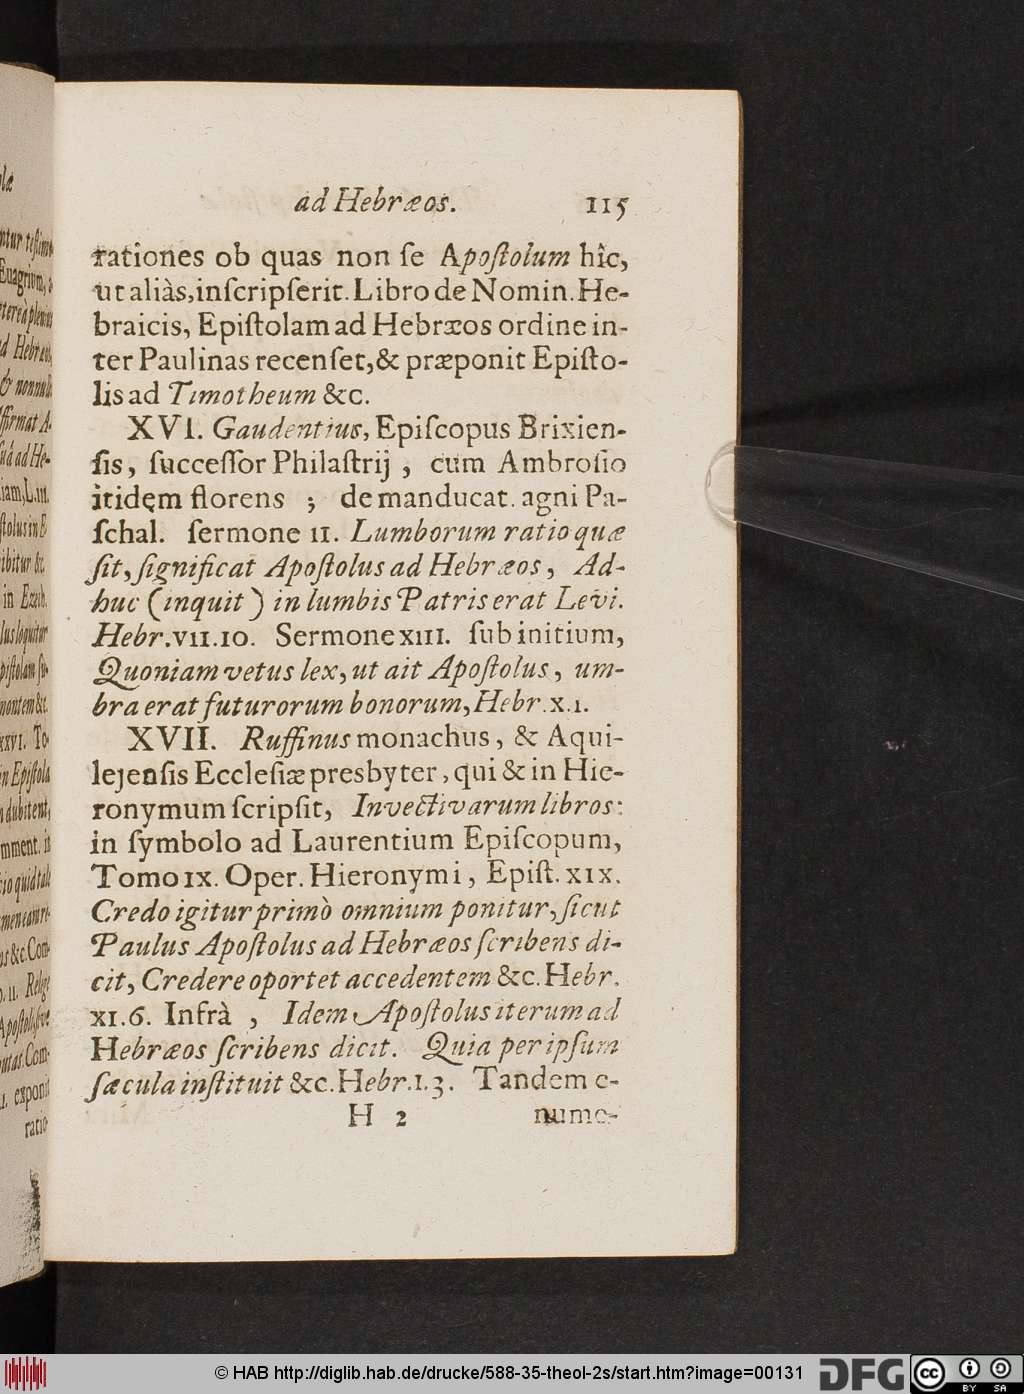 ad Hebræos. 115
rationes ob quas non ſe Apoſtolum hîc,
ut aliàs, inſcripſerit. Libro de Nomin. He-
braicis, Epiſtolam ad Hebræos ordine in-
ter Paulinas recenſet, & præponit Epiſto-
lis ad Timotheum &c.
XVI. Gaudentius, Epiſcopus Brixien-
ſis, ſucceſſor Philaſtrij, cum Ambroſio
itidem florens ; de manducat. agni Pa-
ſchal. ſermone II. Lumborum ratio quæ
ſit, ſignificat Apoſtolus ad Hebræos, Ad-
huc (inquit) in lumbis Patris erat Levi.
Hebr. VII. 10. Sermone XIII. ſub initium,
Quoniam vetus lex, ut ait Apoſtolus, um-
bra erat futurorum bonorum, Hebr. X. 1.
XVII. Ruffinus monachus, & Aqui-
lejenſis Eccleſiæ presbyter, qui & in Hie-
ronymum ſcripſit, Invectivarum libros:
in ſymbolo ad Laurentium Epiſcopum,
Tomo IX. Oper. Hieronymi, Epiſt. XIX.
Credo igitur primò omnium ponitur, ſicut
Paulus Apoſtolus ad Hebræos ſcribens di-
cit, Credere oportet accedentem &c. Hebr.
XI. 6. Infrà, Idem Apoſtolus iterum ad
Hebræos ſcribens dicit. Quia per ipſum
ſæcula inſtituit &c. Hebr. I. 3. Tandem e-
H 2 nume-
© HAB http://diglib.hab.de/drucke/588-35-theol-2s/start.htm?image=00131
DFG
cc BY SA